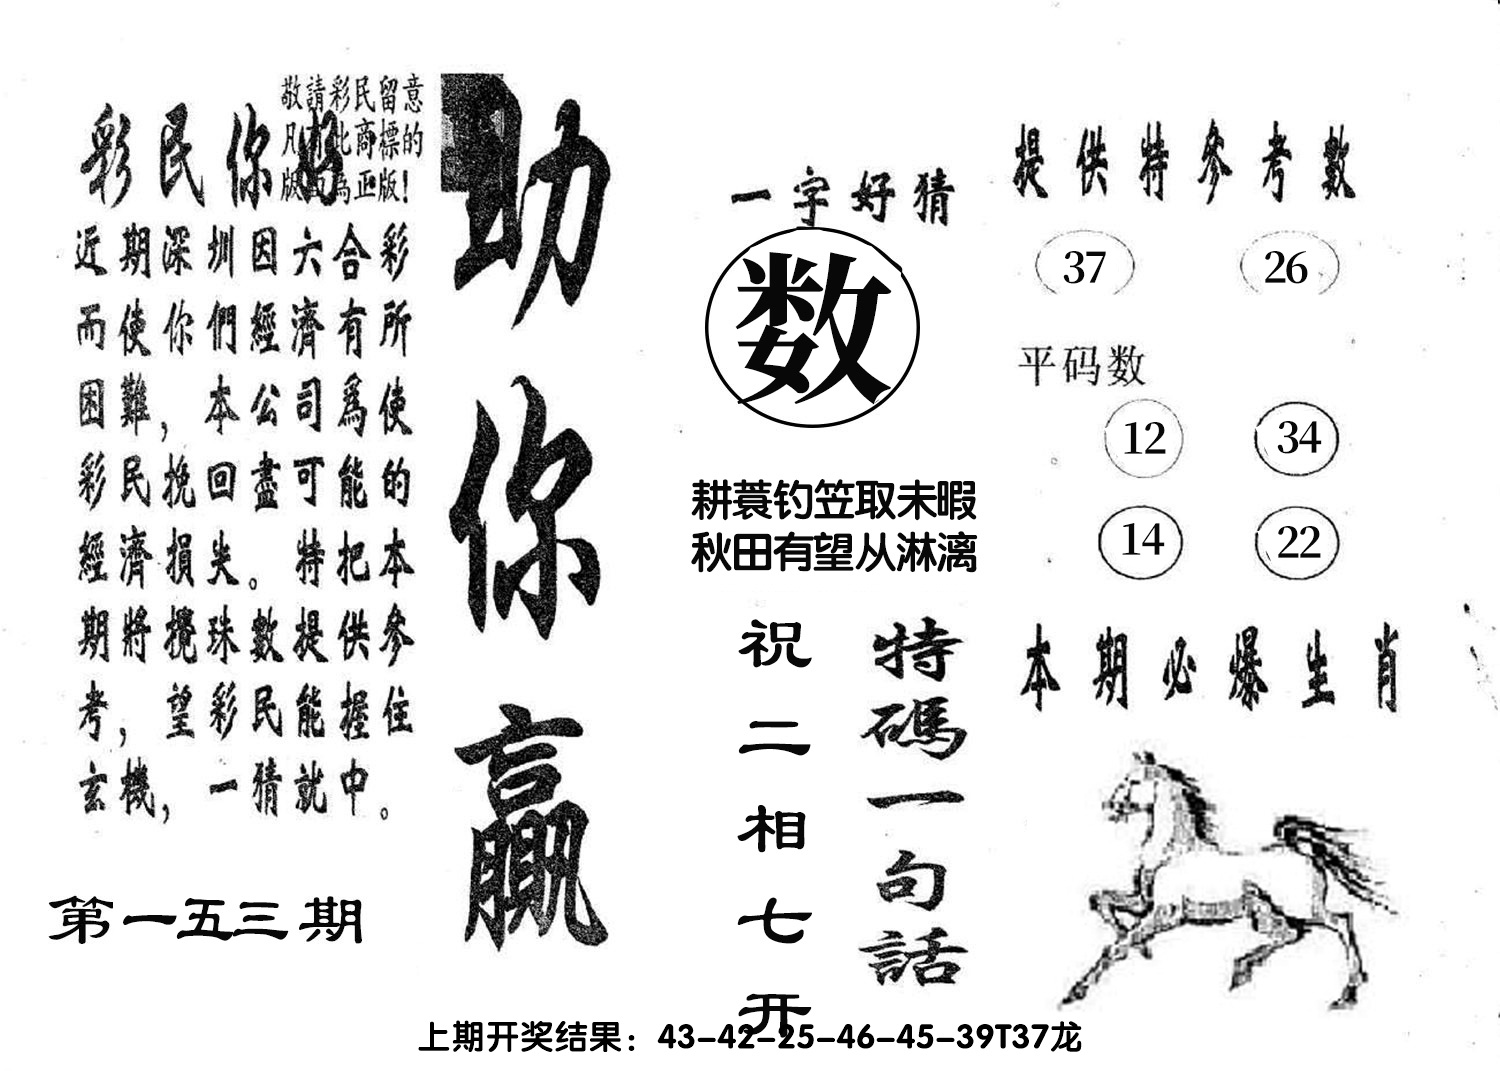 敬請彩民留意
凡有此商標的
版面為正版!
彩民你好
近期深圳因六合彩
而使你們經濟有所
困難，本公司爲使
彩民挽回盡可能的
經濟損失。特把本
期將攪珠數提供參
考，望彩民能握住
玄機，一猜就中。
第一五三期
助你贏
一字好猜
数
耕蓑钓笠取未暇
秋田有望从淋漓
特碼一句話
祝二相七开
提供特參考數
37 26
平码数
12 34
14 22
本期必爆生肖
上期开奖结果：43-42-25-46-45-39T37龙